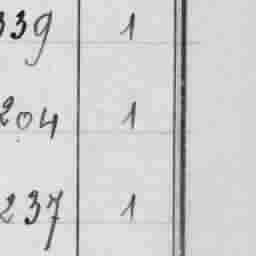 339 1
204 1
237 1